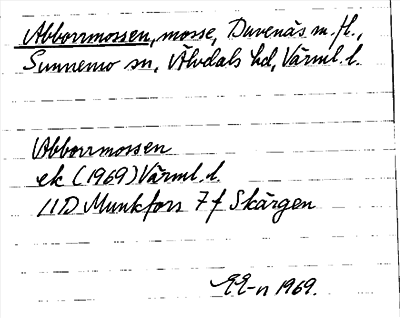 Abborrmossen, mosse, Duvenäs m.fl.,
Sunnemo sn, Älvdals hd, Värml. l.
Abborrmossen
ek (1969) Värml. l.
11D Munkfors 7f Skärgen
1969.